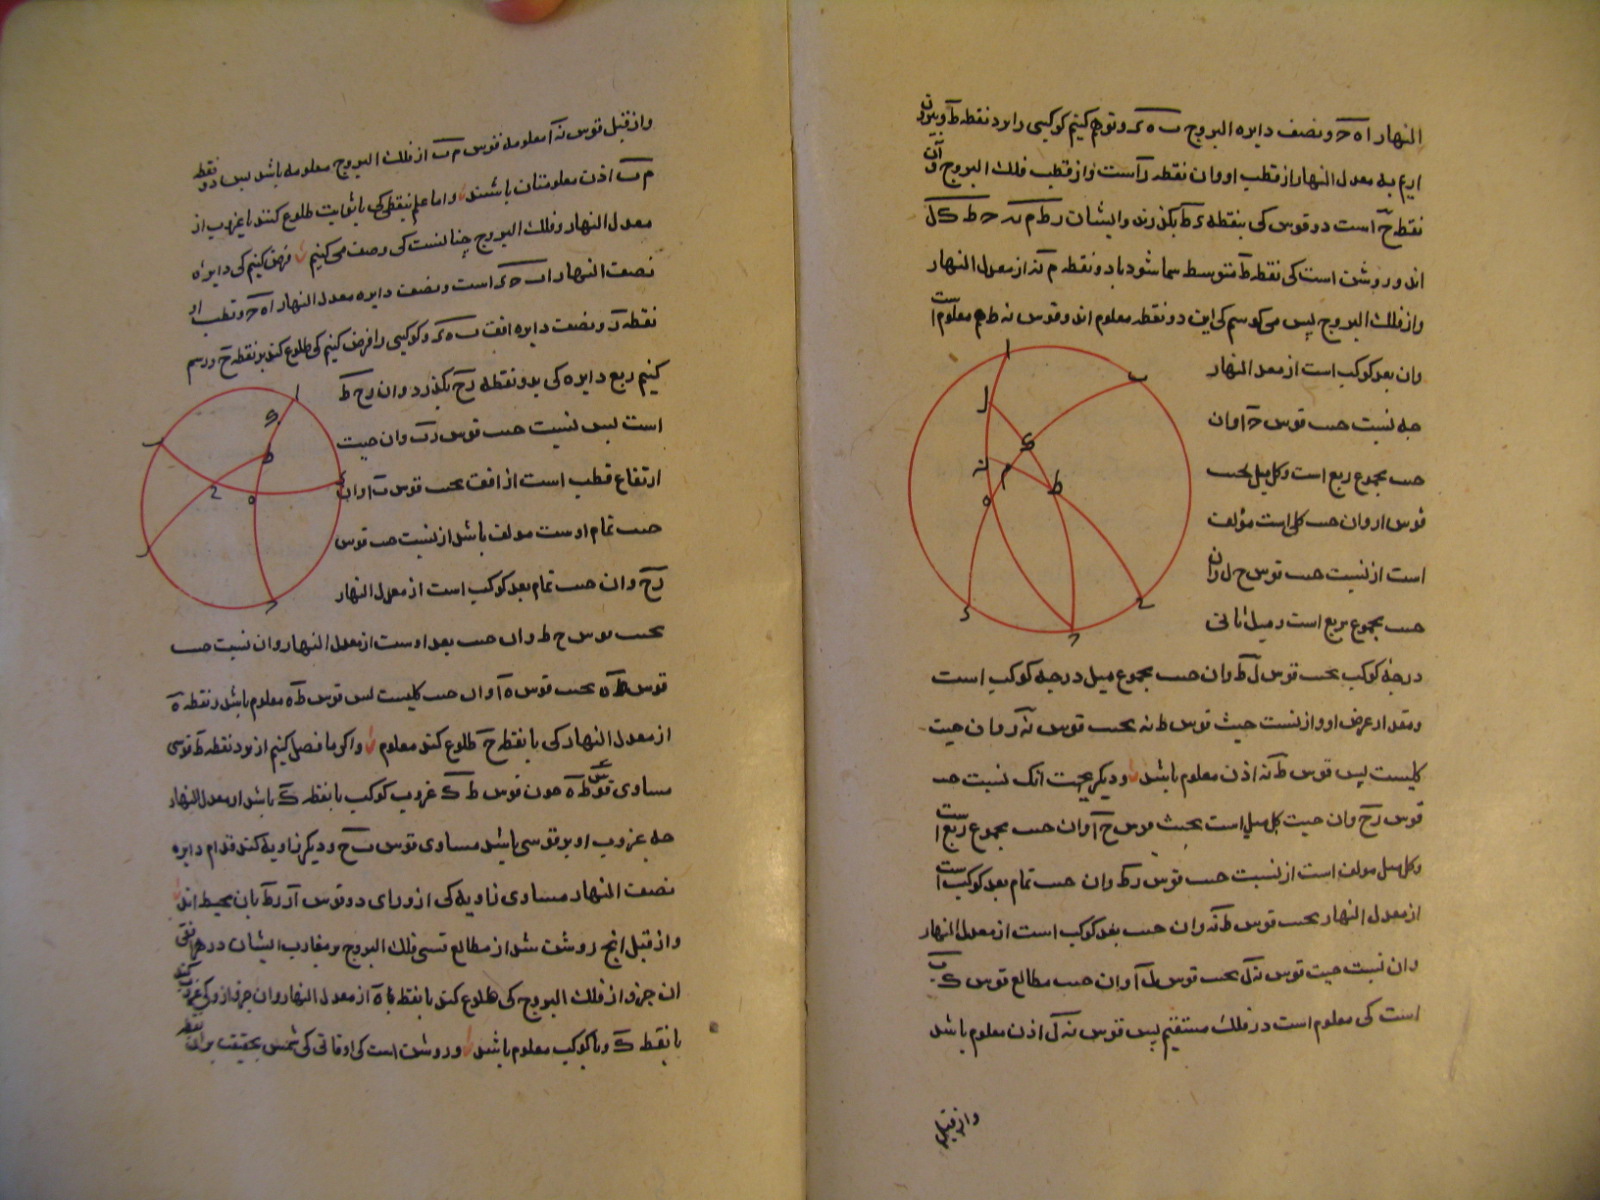 النهار ا ه ح ونصف دایره البروج ب ه د وتوهم کنیم کوکبی را بر د نقطه ط وبیرون
اریم به معدل النهار از قطب او وان نقطه ر است واز قطب فلك البروج وآن
نقطه ح است دو قوس کی بنقطه ط بکذرند وایشان ر ط م نه ح ط ک ل
اند وروشن است کی نقطه ط متوسط سما شود با دو نقطه م نه از معدل النهار
واز فلك البروج پس می کوسم کی این دو نقطه معلوم اند وقوس نه ط هم معلوم است
وان بعد کوکب است از معدل النهار
جه نسبت جیب قوس ح ا وان
جیب مجموع ربع است وکل میل بجیب
قوس ار وان جیب کل است مؤلف
است از نسبت جیب قوس ح ل وان
جیب مجموع ربع است ومیل ثانی
درجه کوکب بجیب قوس ل ط وان جیب مجموع میل درجه کوکب است
ومقدار عرض او واز نسبت جیب قوس ط نه بجیب قوس نه ر وان جیب
کلیست پس قوس ط نه اذن معلوم باشد ودیکر بجهت انک نسبت جیب
قوس ر ح وان جیب کل میل است بجیب قوس ح ا وان جیب مجموع ربع است
وکل میل مولف است از نسبت جیب قوس ر ط وان جیب تمام بعد کوکب است
از معدل النهار بجیب قوس ط نه وان جیب بعد کوکب است از معدل النهار
وان نسبت جیب قوس نه ل بجیب قوس ل ا وان جیب مطالع قوس ک ب
است کی معلوم است در فلك مستقیم پس قوس نه ل اذن معلوم باشد
واز قبل
واز قبل قوس نه ا معلومه قوس م ب از فلك البروج معلومه باشد پس دو نقطه
م ب اذن معلومتان باشند واما علم بنقطی کی با ثوابت طلوع کنند یا غروب از
معدل النهار وفلك البروج چنانست کی وصف می کنیم فرض کنیم کی دایره
نصف النهار ا ب ح د است ونصف دایره معدل النهار ا ه ح وقطب او
نقطه ر ونصف دایره افق ب ه د وکوکبی را فرض کنیم کی طلوع کند بر نقطه ح ورسم
کنیم ربع دایره کی بدو نقطه ر ح بکذرد وان ر ح ط
است پس نسبت جیب قوس ر ب وان جیب
ارتفاع قطب است از افق بجیب قوس ب ا وان
جیب تمام اوست مولف باشد از نسبت جیب قوس
ر ح وان جیب تمام بعد کوکب است از معدل النهار
بجیب قوس ح ط وان جیب بعد اوست از معدل النهار وان نسبت جیب
قوس ط ه بجیب قوس ه ا وان جیب کلیست پس قوس ط ه معلوم باشد ونقطه ه
از معدل النهار کی با نقطه ح طلوع کند معلوم واکر ما فصل کنیم از نزد نقطه ط قوسی
مساوی قوس ط ه چون قوس ط ک غروب کوکب با نقطه ک باشد از معدل النهار
جه غروب او بر قوسی باشد مساوی قوس ب ح ودیکر زاویه کند قدام دایره
نصف النهار مساوی زاویه کی از ورای دو قوس ا ر ر ط بان محیط اند
واز قبل انچ روشن شد از مطالع قسی فلك البروج ومغارب ایشان در هر افقی
ان جزو از فلك البروج کی طلوع کند با نقطه ه از معدل النهار وان جزو از وکی غروب کند
با نقطه ک وبا کوکب معلوم باشد وروشن است کی اوقاتی کی شمس بحقیقت بران نقطه